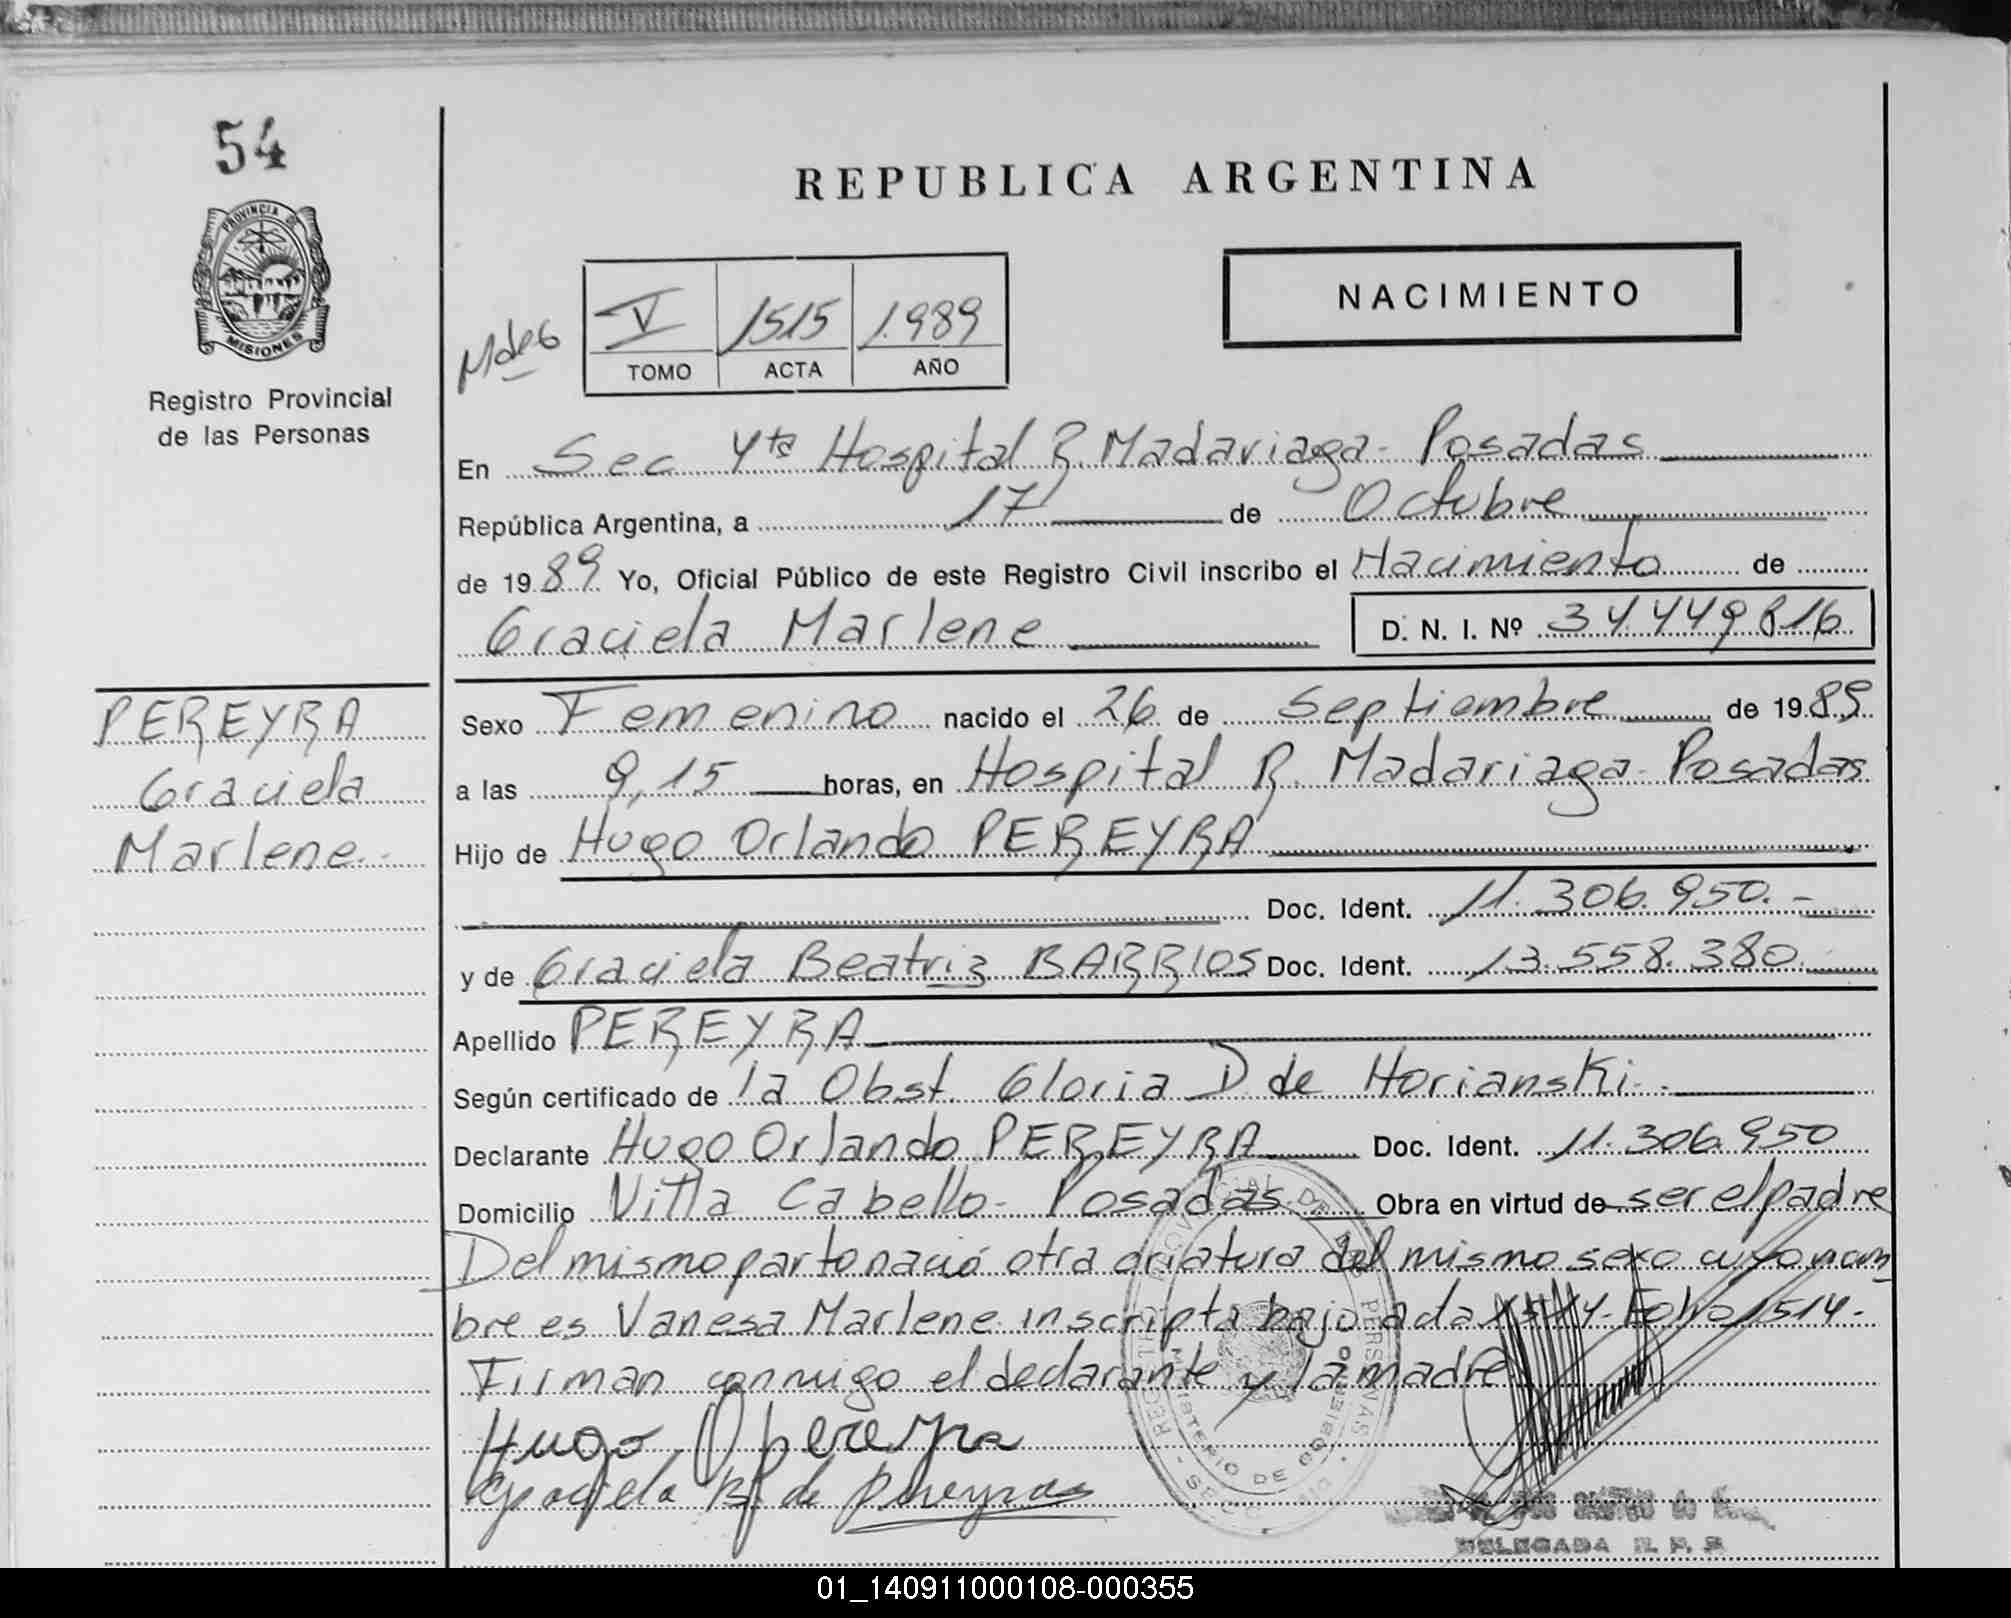 54
REPUBLICA ARGENTINA
PROVINCIA DE
MISIONES
Registro Provincial
de las Personas
Mdes
V 1515 1.989
TOMO ACTA AÑO
NACIMIENTO
En Sec 4ta Hospital R. Madariaga- Posadas
República Argentina, a 17 de Octubre
de 1989. Yo, Oficial Público de este Registro Civil inscribo el Nacimiento de
Graciela Marlene D. N. I. Nº 34.449.816
PEREYRA
Graciela
Marlene.-
Sexo Femenino nacido el 26 de Septiembre de 1989
a las 9,15 horas, en Hospital R. Madariaga- Posadas
Hijo de Hugo Orlando PEREYRA
Doc. Ident. 11.306.950.-
y de Graciela Beatriz BARRIOS Doc. Ident. 13.558.380.
Apellido PEREYRA
Según certificado de la Obst. Gloria D. de Horianski.-
Declarante Hugo Orlando PEREYRA Doc. Ident. 11.306.950
Domicilio Villa Cabello- Posadas Obra en virtud de ser el padre
Del mismo parto nació otra criatura del mismo sexo cuyo nom
bre es Vanesa Marlene inscripta bajo acta 1514- Folio 1514-
Firman conmigo el declarante y la madre
Hugo O pereyra
Graciela B. de Pereyra
MINISTERIO DE GOBIERNO
DELEGADA R. P. P.
01_140911000108-000355